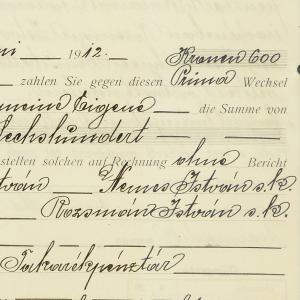 ni 1912. Kronen 600
zahlen Sie gegen diesen Prima Wechsel
meine Eigene die Summe von
Sechshundert
stellen solchen auf Rechnung ohne Bericht
István Nemes István s.k.
Rozsmán István s.k.
Takarékpénztár